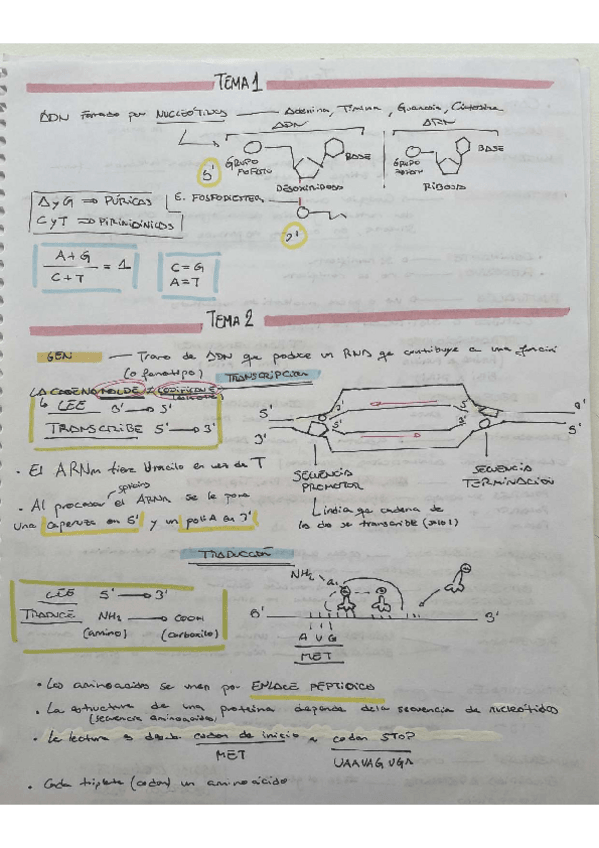 TEMA 1
ADN formado por NUCLEÓTIDOS — Adenina, Timina, Guanina, Citosina
ADN ARN
GRUPO FOSFATO BASE GRUPO BASE
5'
DESOXIRIBOSA RIBOSA
A y G ⇒ PÚRICAS
C y T ⇒ PIRIMIDÍNICOS
E. FOSFODIESTER
A + G / C + T = 1
C = G
A = T
TEMA 2
GEN — Trozo de ADN que produce un RNA que contribuye a una función
(o fenotipo)
TRANSCRIPCION
LA CADENA MOLDE ≠
LEE 3' → 5'
TRANSCRIBE 5' → 3'
5' 3'
3' 5'
SECUENCIA PROMOTOR
SECUENCIA TERMINACIÓN
• El ARNm tiene Uracilo en vez de T
• Al procesar el ARNm se le pone
una caperuza en 5' y un poli A en 3'
Indica que cadena de
las dos se transcribe (solo 1)
TRADUCCIÓN
LEE 5' → 3'
TRADUCE NH2 → COOH
(amino) (carboxilo)
NH2 aa
5' 3'
A U G
MET
• Los aminoacidos se unen por ENLACE PEPTIDICO
• La estructura de una proteina depende de la secuencia de nucleótidos
(secuencia aminoacidos)
• La lectura es desde codon de inicio a codon STOP
MET UAA UAG UGA
• Cada triplete (codon) un aminoácido